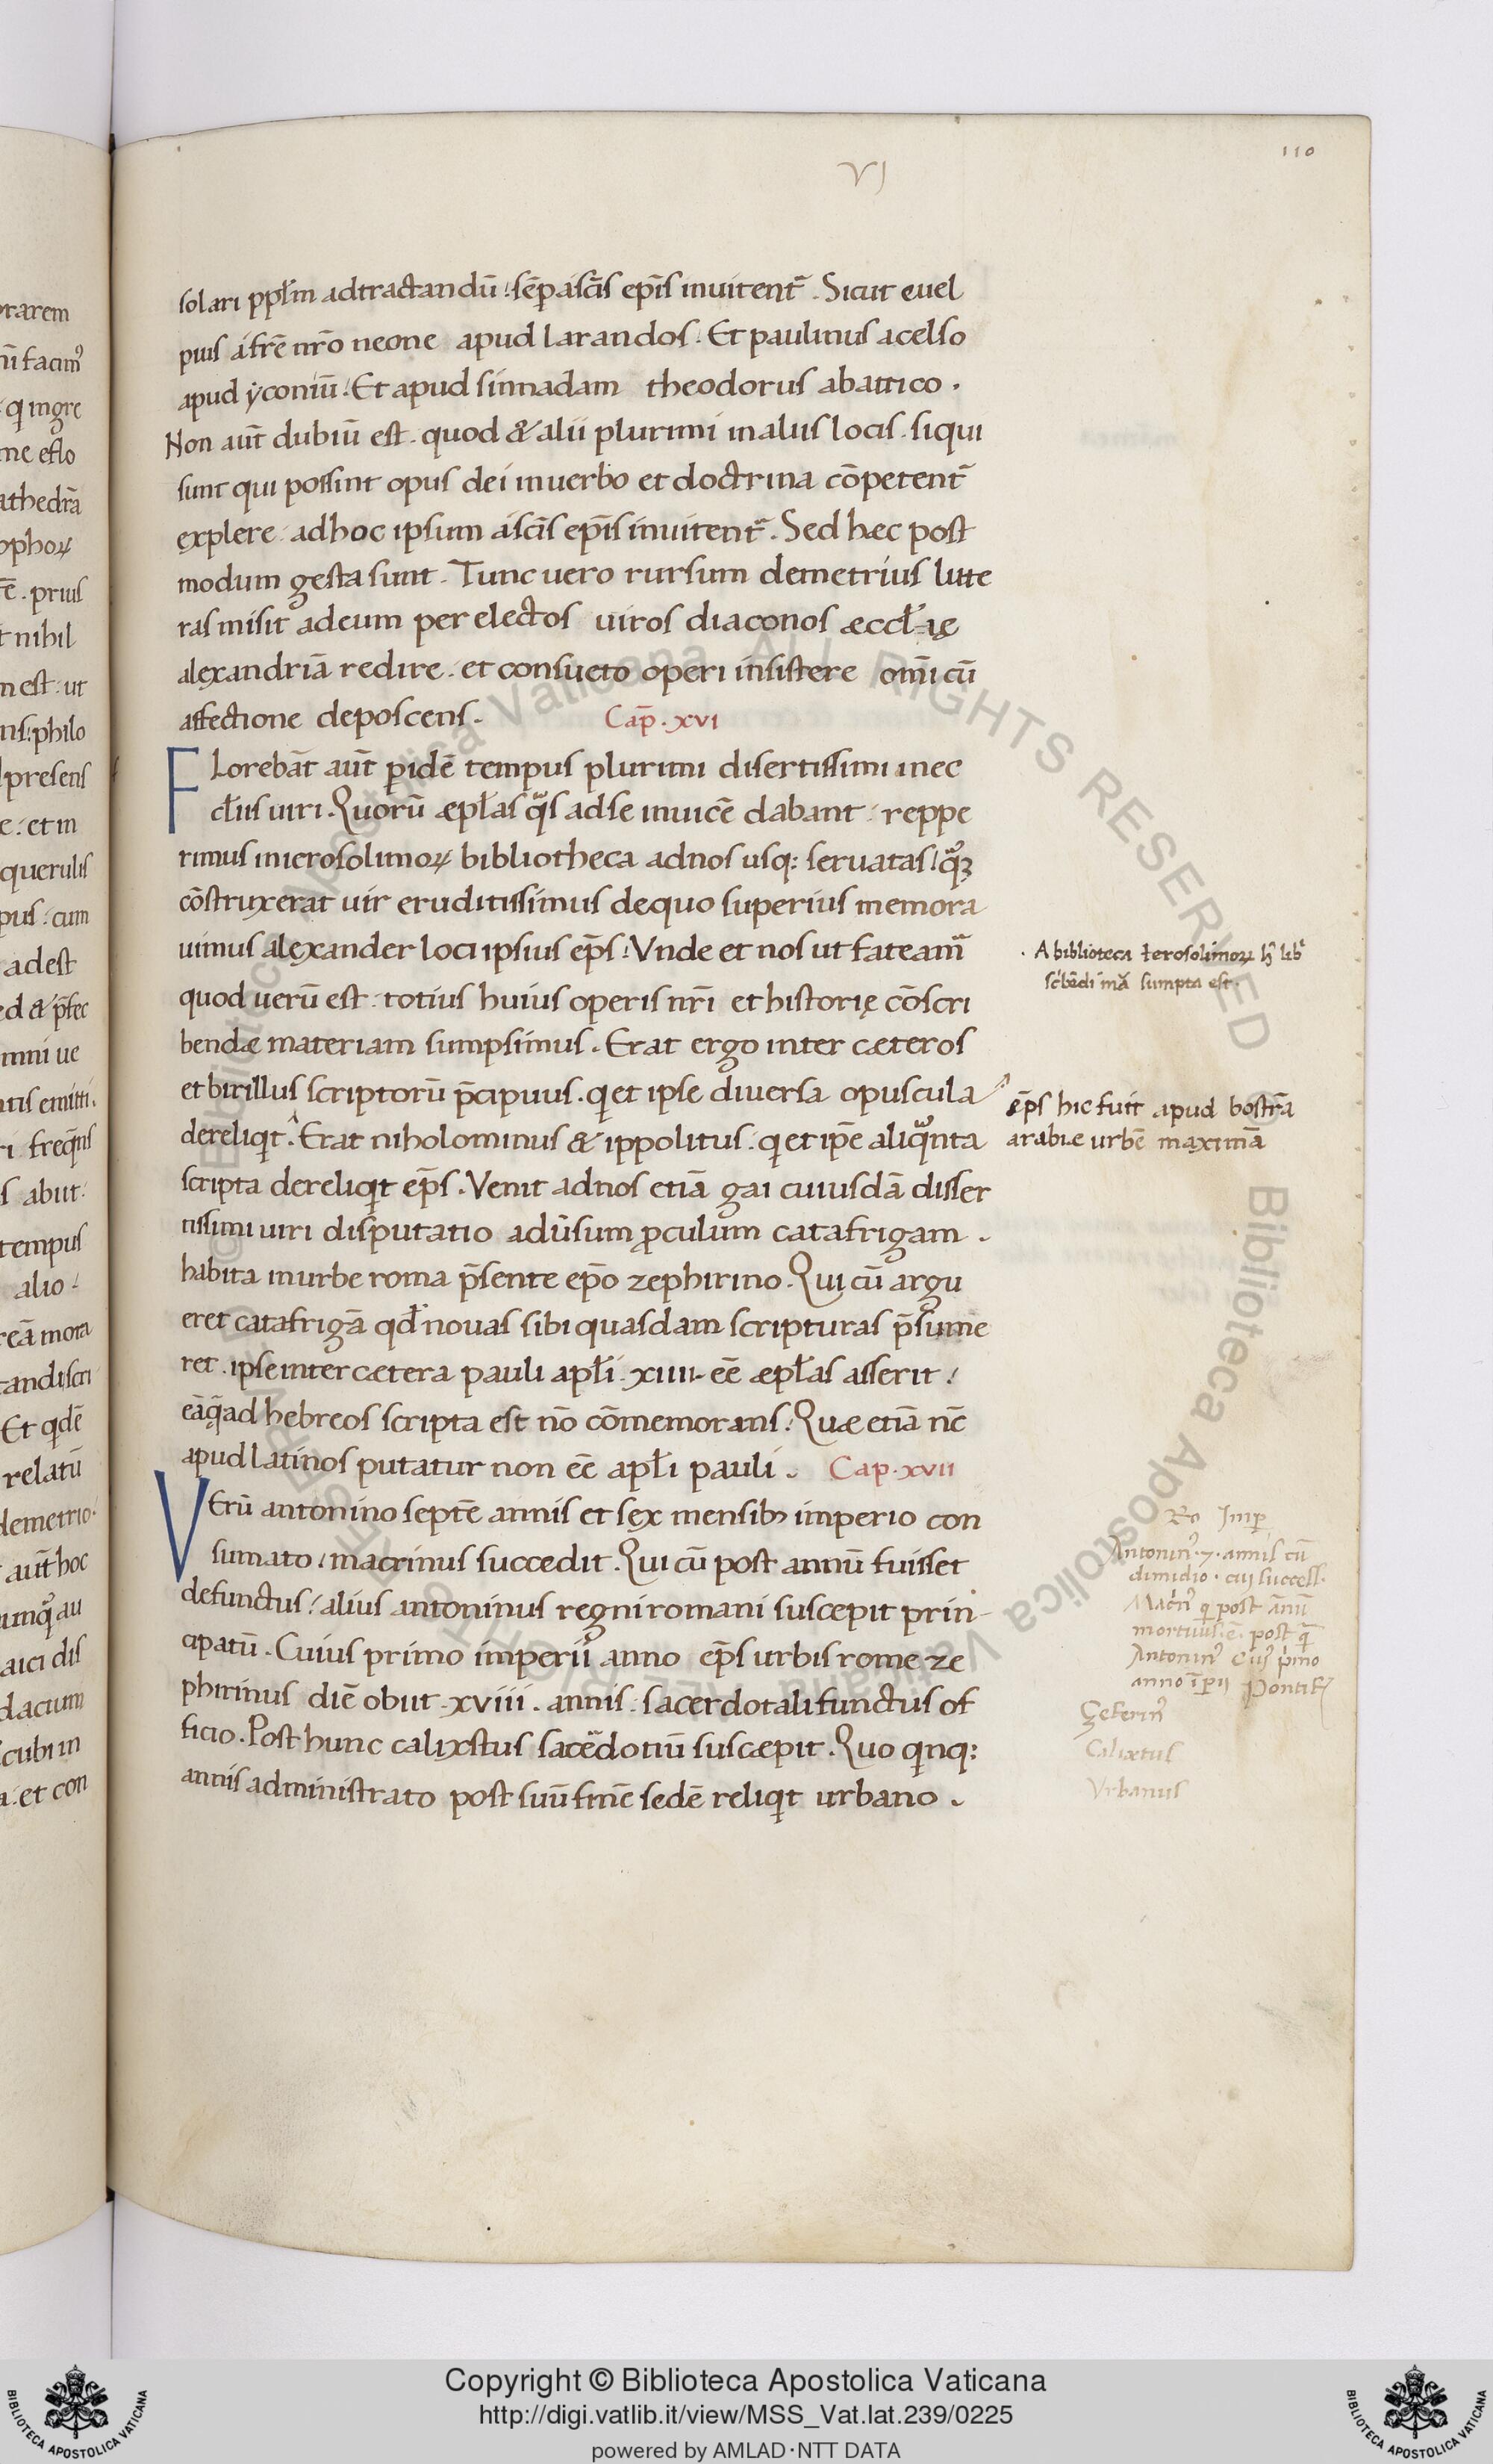 VI
110
solari ppl̄m adtractandū. sēp a sc̄is ep̄is inuitent̄. Sicut euel
pius a fr̄e nr̄o neone apud larandos. Et paulinus a celso
apud yconiū. Et apud sinnadam theodorus ab attico.
Non aut̄ dubiū est. quod & alii plurimi in aliis locis. siqui
sunt qui possint opus dei in uerbo et doctrina cōpetent̄
explere. ad hoc ipsum a sc̄is ep̄is inuitent̄. Sed hæc post
modum gesta sunt. Tunc uero rursum demetrius litte
ras misit ad eum per electos uiros diaconos æccl̄ię
alexandriā redire. et consueto operi insistere om̄i cū
affectione deposcens. Cap̄. xvi
Florebāt aut̄ p idē tempus plurimi disertissimi in ec
cl̄iis uiri. Quorū æpl̄as q̄s ad se inuicē dabant. reppe
rimus in ierosolimoꝝ bibliotheca ad nos usq; seruatas. quā
cōstruxerat uir eruditissimus de quo superius memora
uimus alexander loci ipsius ep̄s. Vnde et nos ut fateam̄
quod uerū est. totius huius operis nr̄i et historię cōscri
bendæ materiam sumpsimus. Erat ergo inter cæteros
et birillus scriptorū p̄cipuus. q et ipse diuersa opuscula
dereliqt. Erat niholominus & ippolitus. q et ip̄e aliqnta
scripta dereliqt ep̄s. Venit ad nos etiā gai cuiusdā disser
tissimi uiri disputatio adūsum ꝓculum catafrigam.
habita in urbe roma p̄sente ep̄o zephirino. Qui cū argu
eret catafrigā qd̄ nouas sibi quasdam scripturas p̄sume
ret. ipse inter cætera pauli apl̄i. xiiii. eē æpl̄as asserit.
eā q̄ ad hebreos scripta est nō cōmemorans. Quæ etiā nc̄
apud latinos putatur non eē apl̄i pauli. Cap. xvii
Verū antonino septē annis et sex mensibꝫ imperio con
sumato. macrinus succedit. Qui cū post annū fuisset
defunctus. alius antoninus regni romani suscepit prin-
cipatū. Cuius primo imperii anno ep̄s urbis rome ze
phirinus diē obiit. xviii. annis. sacerdotali functus of
ficio. Post hunc calixstus sacēdotiū suscæpit. Quo qnq;
annis administrato post suū finē sedē reliqt urbano.
A biblioteca ierosolimoꝝ h̄ lib
sc̄bēdi mā sumpta est.
ep̄s hic fuit apud bostrā
arabiæ urbē maximā
Ro Imp
Antonin⁹. 7. annis cū
dimidio. cui success.
Macrin⁹ q post ānū
mortuus. ē. post q̄
Antonin⁹ Cui⁹ p̄mo
anno īpii Pontif
Zeferin⁹
Calixtus
Vrbanus
Copyright © Biblioteca Apostolica Vaticana
http://digi.vatlib.it/view/MSS_Vat.lat.239/0225
powered by AMLAD·NTT DATA
BIBLIOTECA APOSTOLICA VATICANA
BIBLIOTECA APOSTOLICA VATICANA